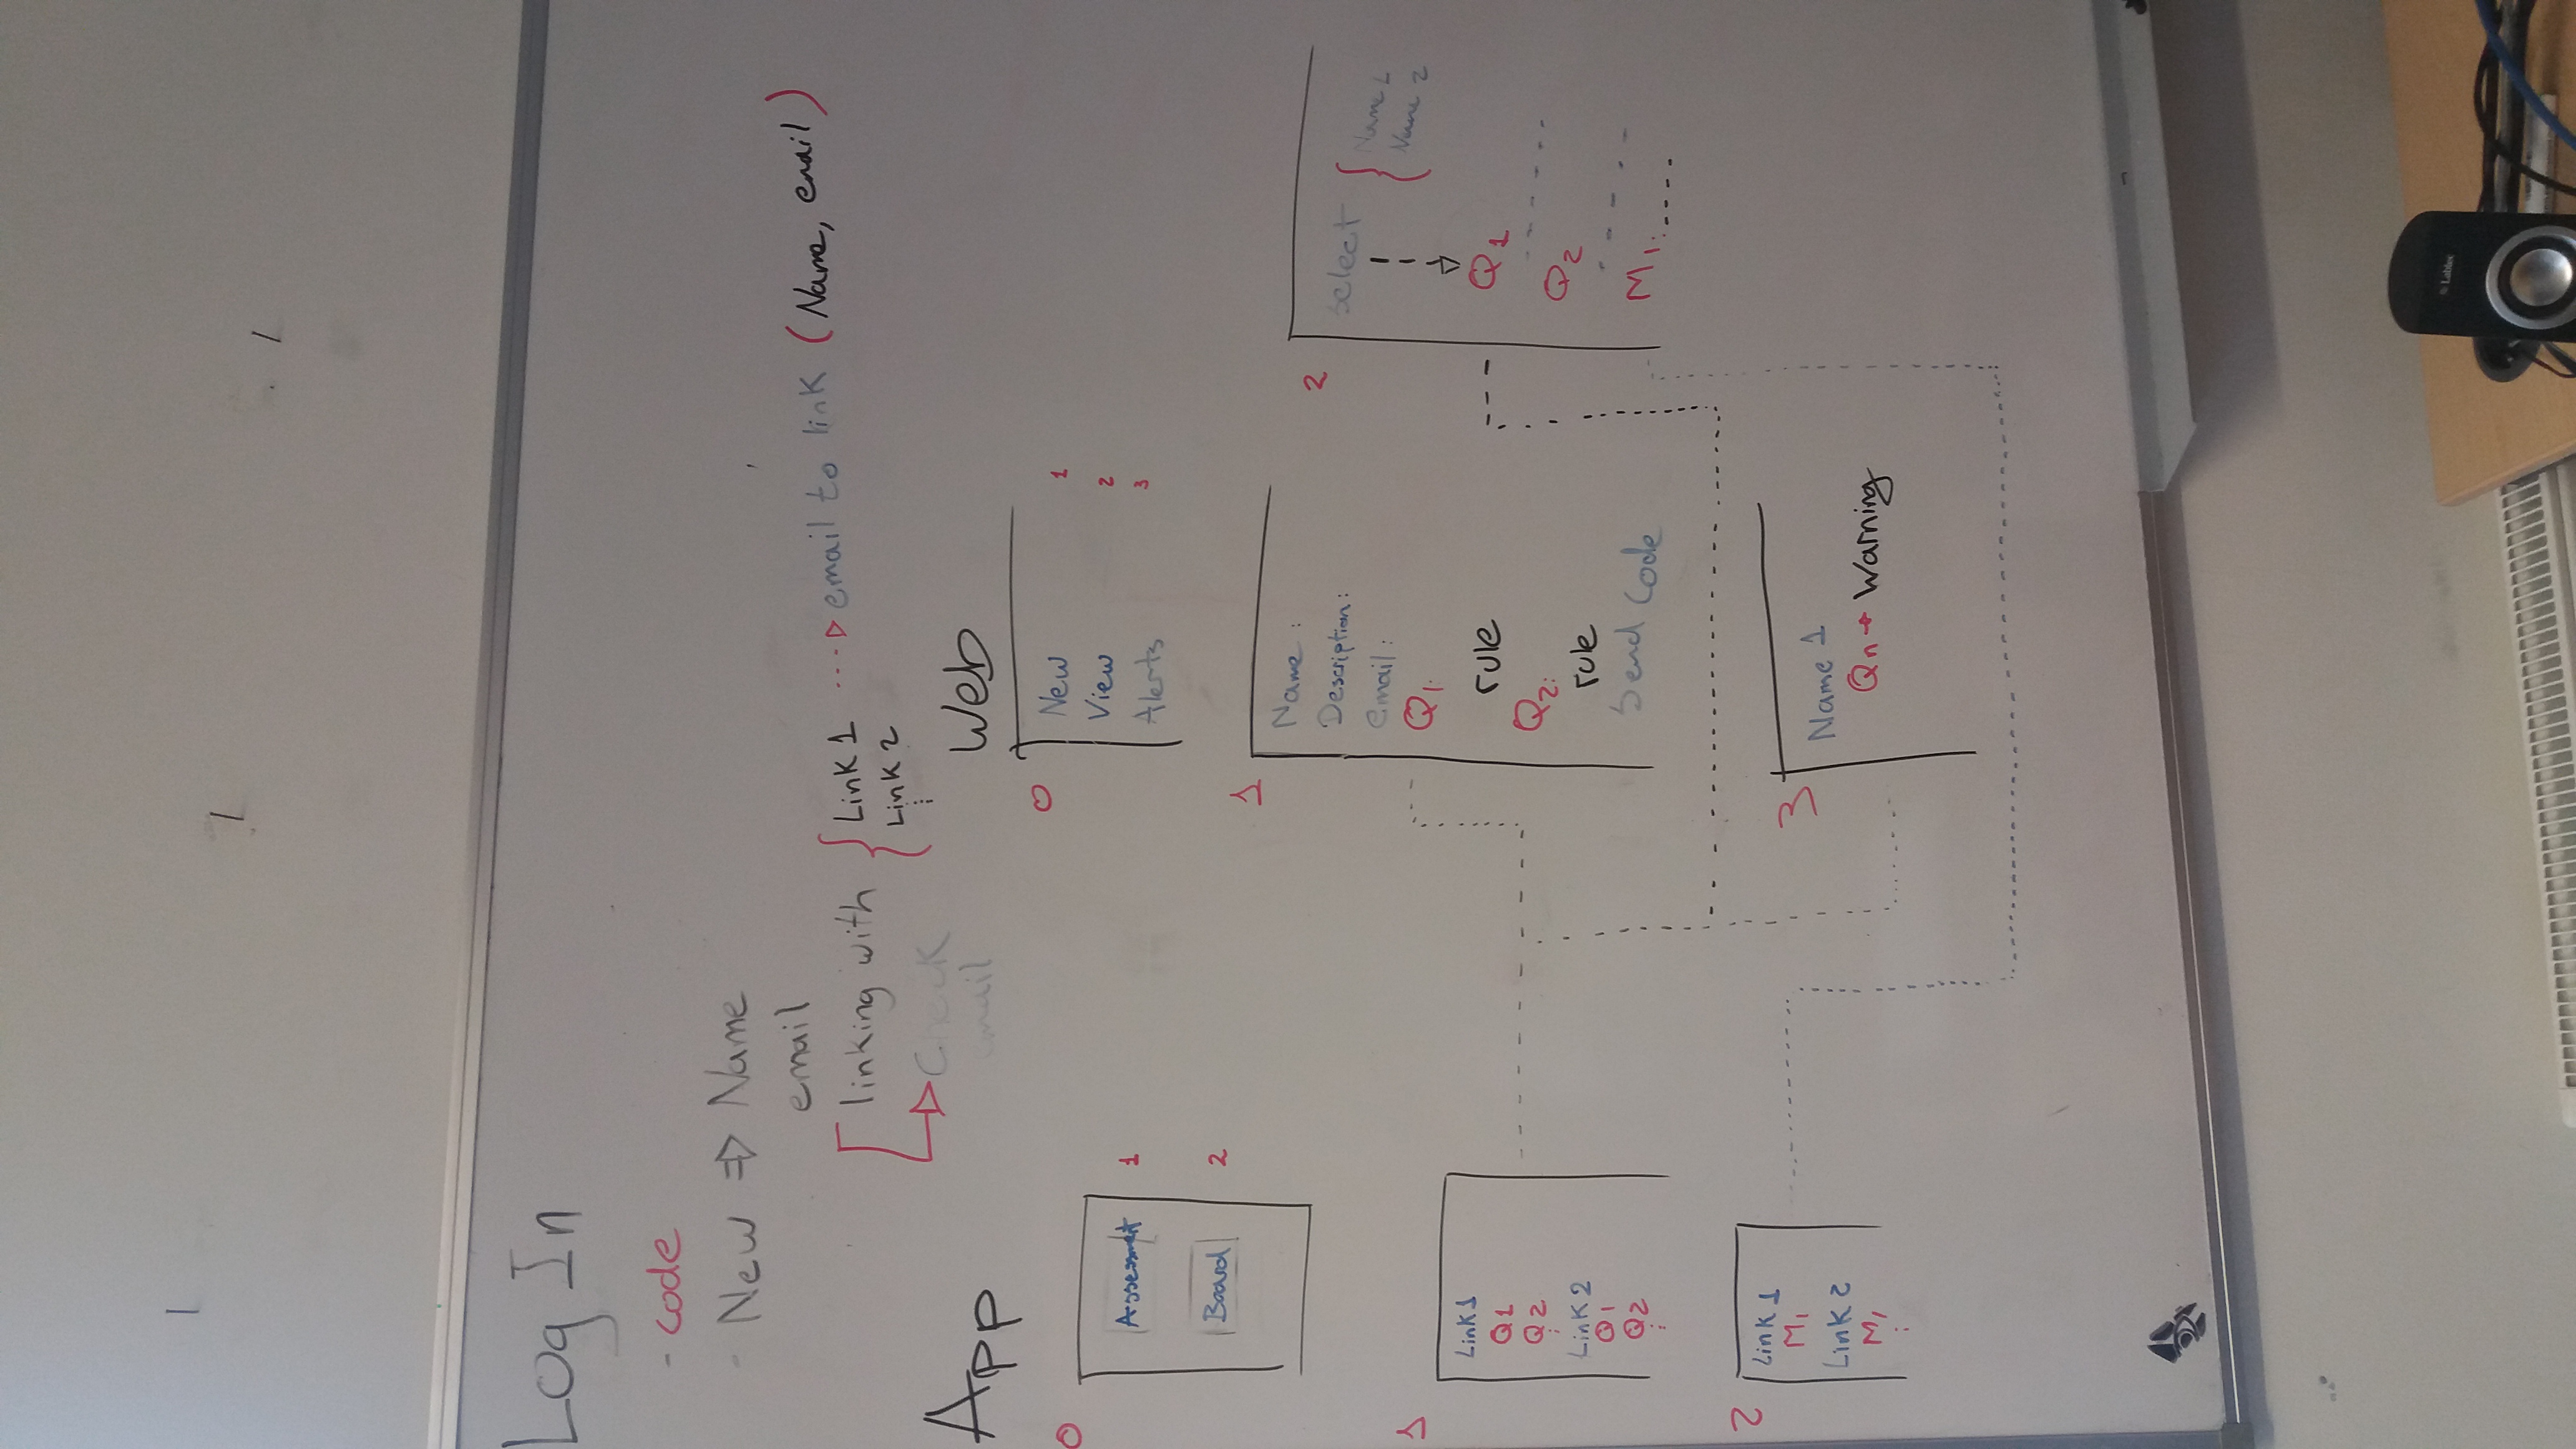 Log In
- code
- New ⇒ Name
email
linking with { Link 1 ···▷ email to link (Name, email)
Link 2
⋮
Check
email
App
0
Assessment 1
Board 2
1
Link 1
Q1
Q2
⋮
Link 2
Q1
Q2
⋮
2
Link 1
M1
Link 2
M1
⋮
Web
0
New 1
View 2
Alerts 3
1
Name :
Description:
Email:
Q1:
rule
Q2:
rule
Send Code
2
Select { Name 1
Name 2
Q1
Q2
M1:
3
Name 1
Qn → Warning
Labtec